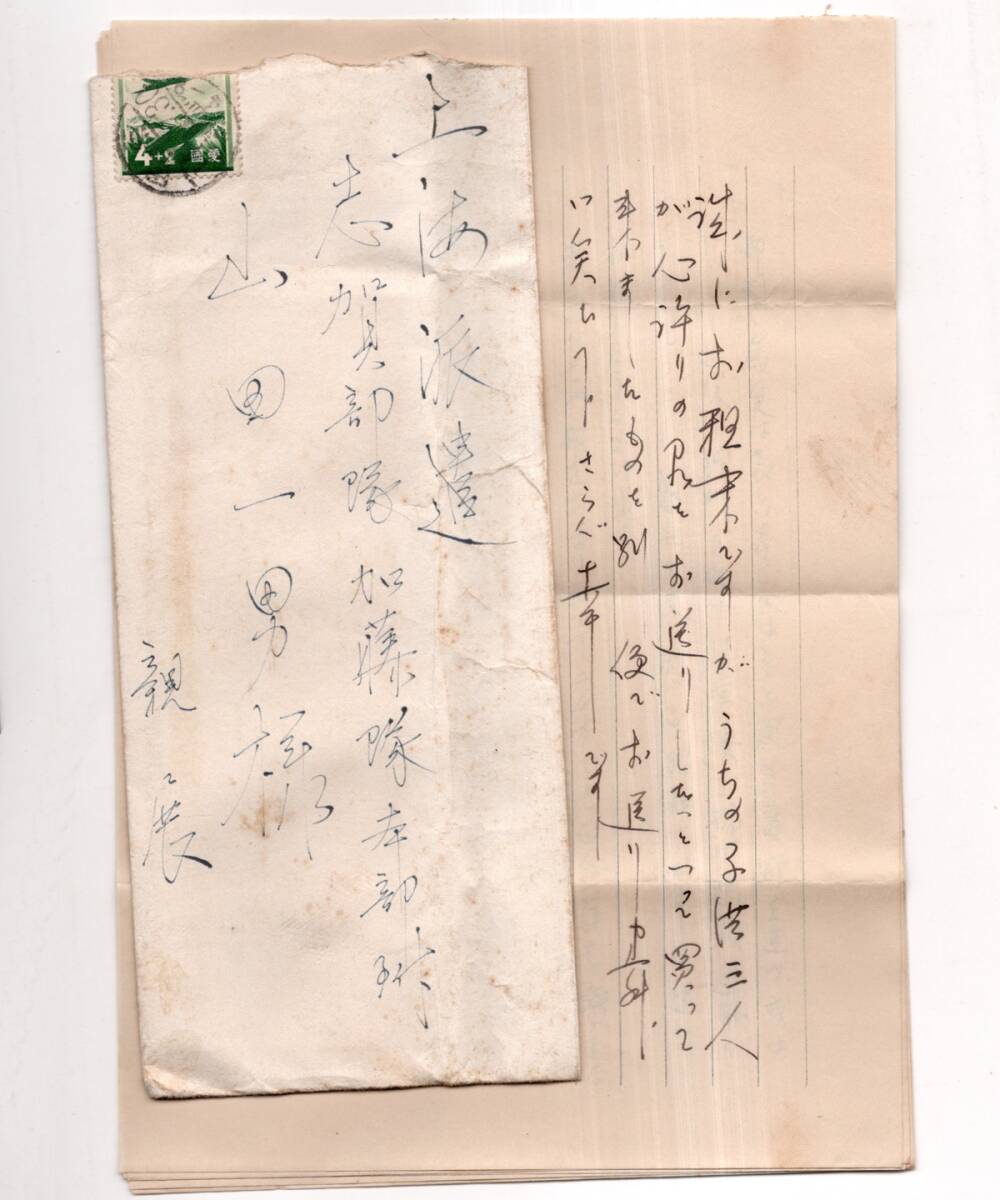 誠にお粗末ですがうちの子供三人
が心許りの品をお送りしたいとつて買って
来ましたものを別便でお送り申升
御笑ひ下さらば幸です
上海派遣
志賀部隊加藤隊本部附
山田一男様
親展
4+2
愛國